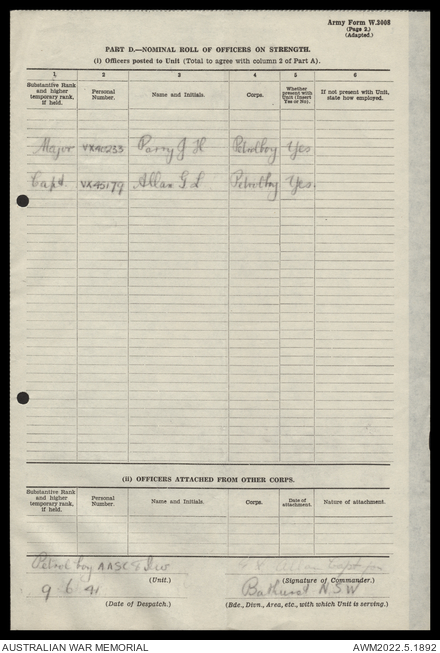 Army Form W.3008
(Page 2.)
(Adapted.)
PART D.—NOMINAL ROLL OF OFFICERS ON STRENGTH.
(i) Officers posted to Unit (Total to agree with column 2 of Part A).
1 2 3 4 5 6
Substantive Rank and higher temporary rank, if held. Personal Number. Name and Initials. Corps. Whether present with Unit (Insert Yes or No). If not present with Unit, state how employed.
Major Parry J H Petrol Coy Yes
Capt. VX45179 Allan G L Petrol Coy Yes.
(ii) OFFICERS ATTACHED FROM OTHER CORPS.
Substantive Rank and higher temporary rank, if held. Personal Number. Name and Initials. Corps. Date of attachment. Nature of attachment.
Petrol Coy AASC Allan Capt for
(Unit.) (Signature of Commander.)
9. 6. 41 Bathurst N.S.W
(Date of Despatch.) (Bde., Divn., Area, etc., with which Unit is serving.)
AUSTRALIAN WAR MEMORIAL AWM2022.5.1892